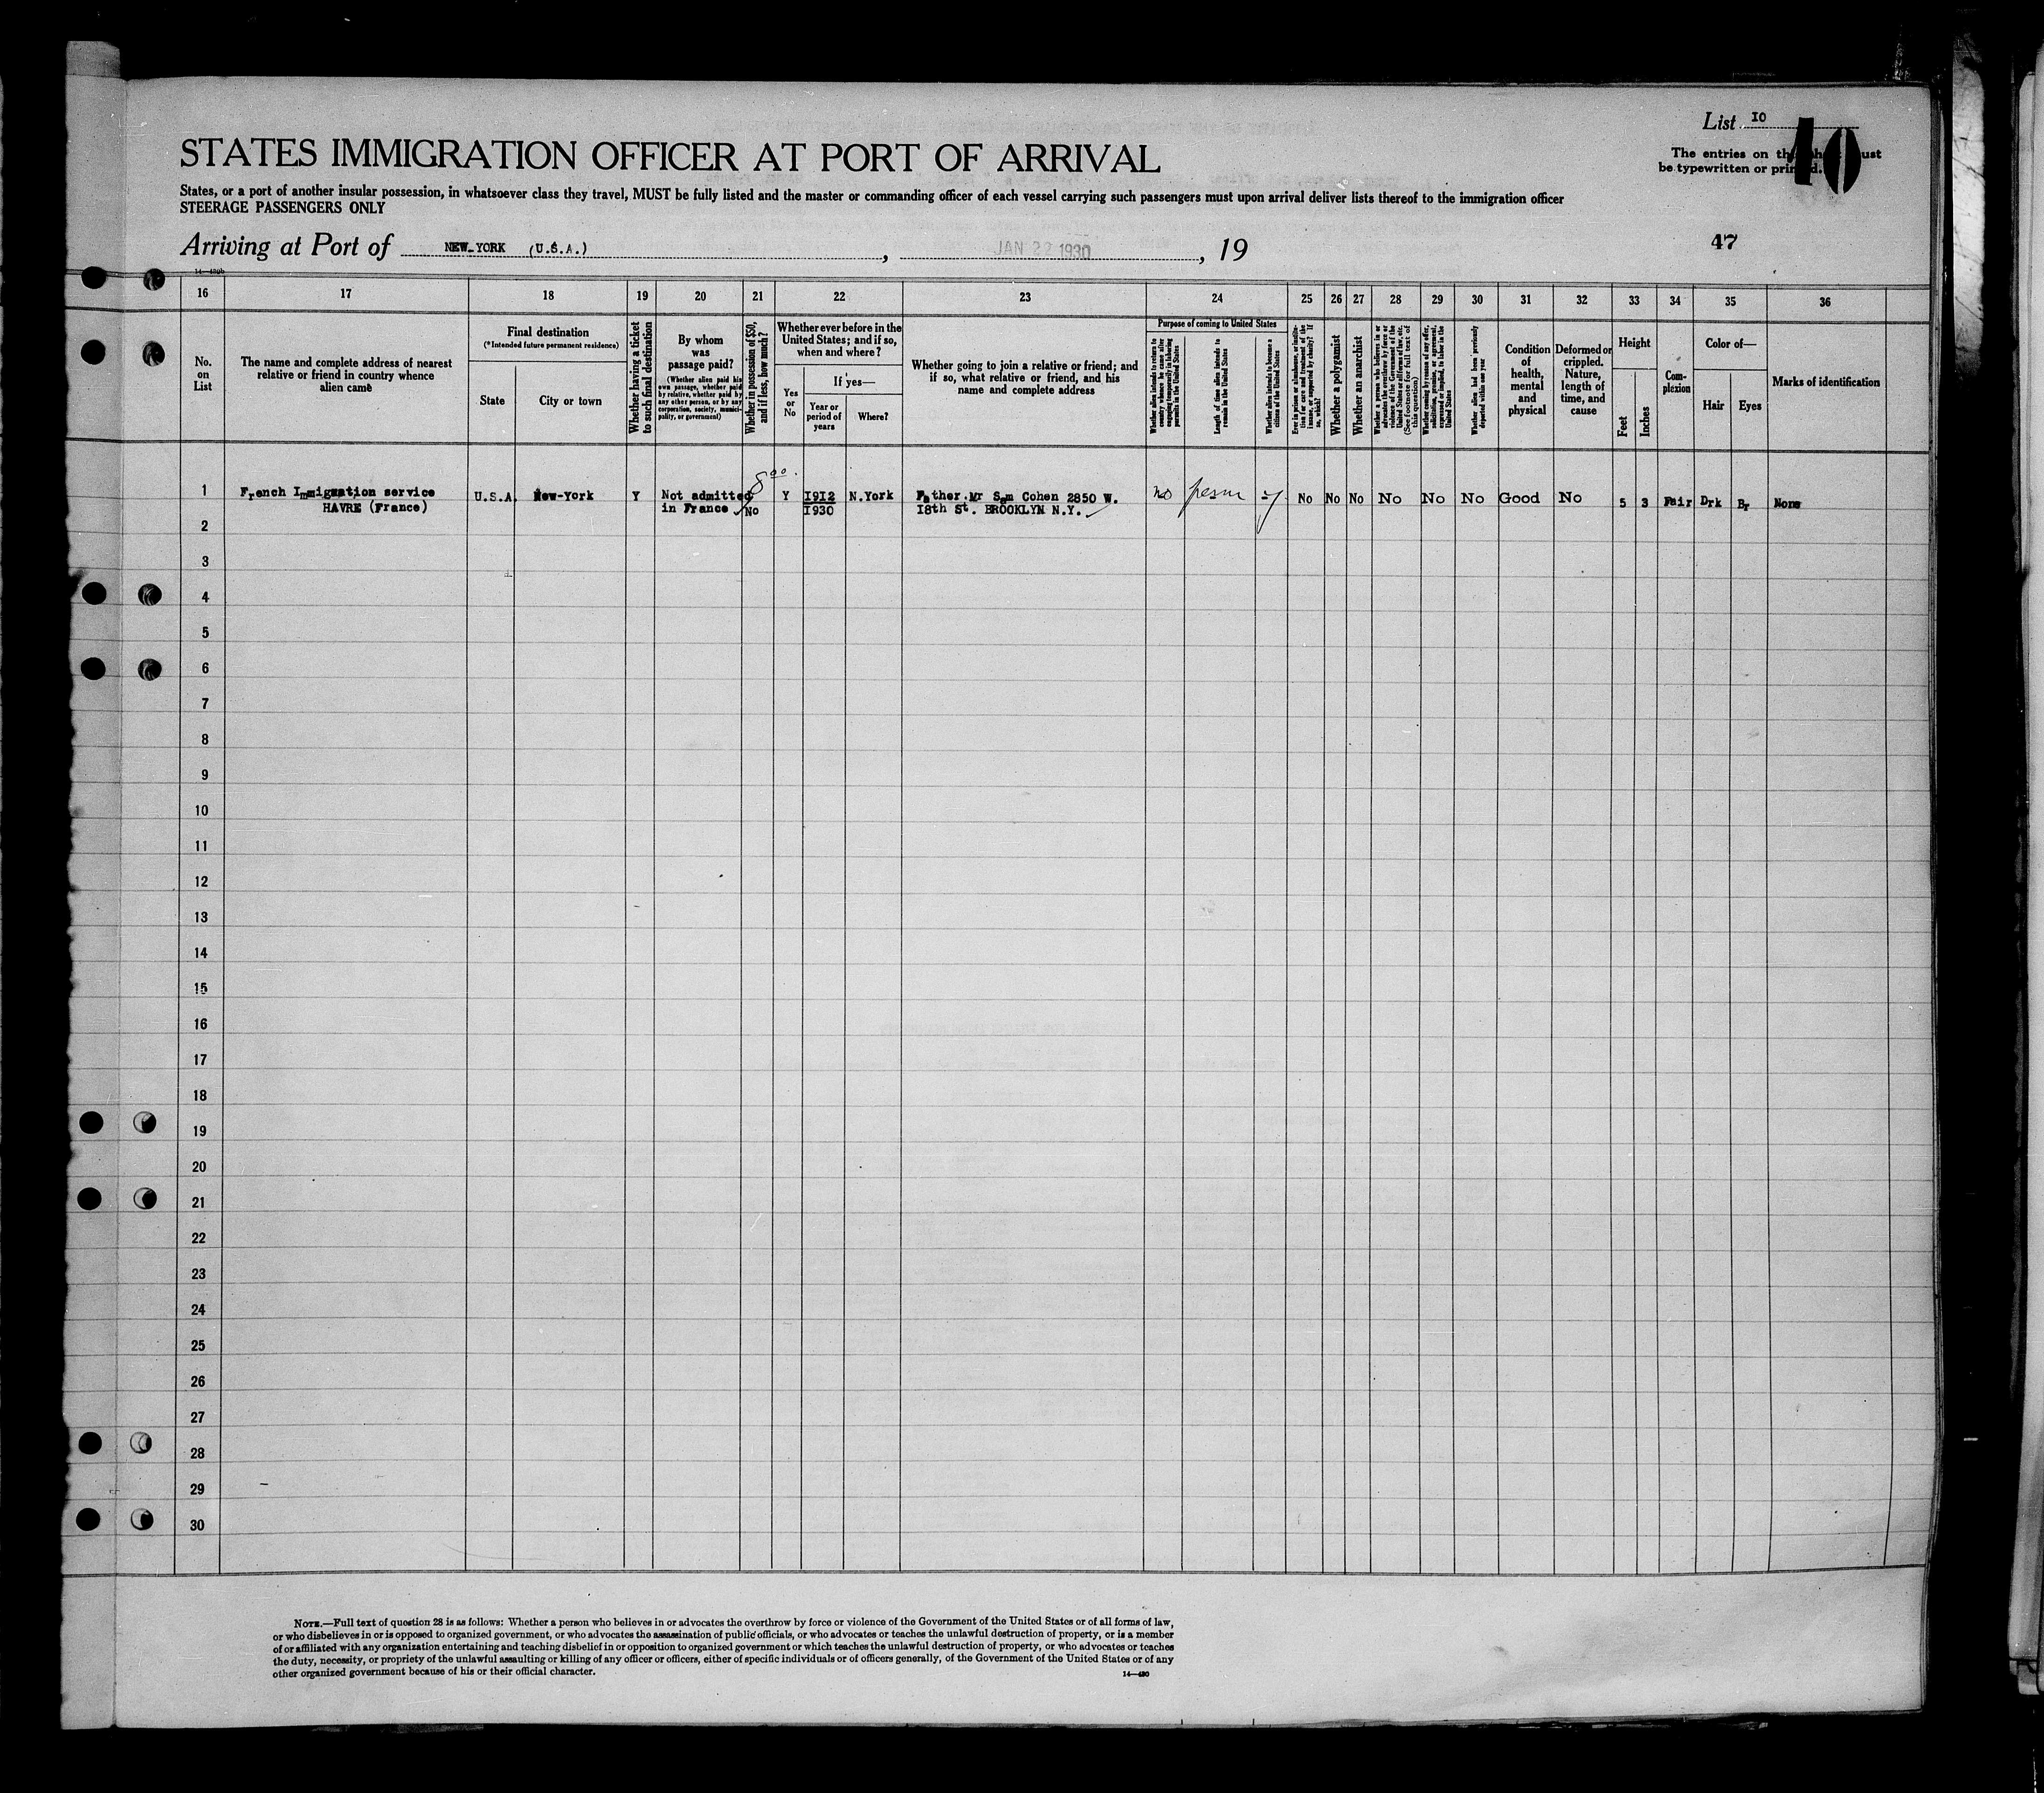 List 10
10
The entries on this sheet must
be typewritten or printed.
STATES IMMIGRATION OFFICER AT PORT OF ARRIVAL
States, or a port of another insular possession, in whatsoever class they travel, MUST be fully listed and the master or commanding officer of each vessel carrying such passengers must upon arrival deliver lists thereof to the immigration officer
STEERAGE PASSENGERS ONLY
Arriving at Port of NEW-YORK (U.S.A.), JAN 22 1930, 19
47
14—480b
16 17 18 19 20 21 22 23 24 25 26 27 28 29 30 31 32 33 34 35 36
No. on List
The name and complete address of nearest
relative or friend in country whence
alien came
Final destination
(*Intended future permanent residence)
State
City or town
Whether having a ticket
to such final destination
By whom
was
passage paid?
(Whether alien paid his
own passage, whether paid
by relative, whether paid by
any other person, or by any
corporation, society, munici-
pality, or government)
Whether in possession of $50,
and if less, how much?
Whether ever before in the
United States; and if so,
when and where?
Yes or No
If yes—
Year or
period of
years
Where?
Whether going to join a relative or friend; and
if so, what relative or friend, and his
name and complete address
Purpose of coming to United States
Whether alien intends to return to
country whence he came after
engaging temporarily in laboring
pursuits in the United States
Length of time alien intends to
remain in the United States
Whether alien intends to become a
citizen of the United States
Ever in prison or almshouse, or institu-
tion for care and treatment of the
insane, or supported by charity? If
so, which?
Whether a polygamist
Whether an anarchist
Whether a person who believes in or
advocates the overthrow by force or
violence of the Government of the
United States or all forms of law, etc.
(See footnote for full text of
this question)
Whether coming by reason of any offer,
solicitation, promise, or agreement,
expressed or implied, to labor in the
United States
Whether alien had been previously
deported within one year
Condition
of
health,
mental
and
physical
Deformed or
crippled.
Nature,
length of
time, and
cause
Height
Feet
Inches
Com-
plexion
Color of—
Hair
Eyes
Marks of identification
800.
1 French Immigration service U.S.A. New-York Y Not admitted Y 1912 N.York Father Mr Sam Cohen 2850 W. no perm y No No No No No No Good No 5 3 Fair Drk Br None
HAVRE (France) in France No 1930 18th St. BROOKLYN N.Y.
2
3
4
5
6
7
8
9
10
11
12
13
14
15
16
17
18
19
20
21
22
23
24
25
26
27
28
29
30
NOTE.—Full text of question 28 is as follows: Whether a person who believes in or advocates the overthrow by force or violence of the Government of the United States or of all forms of law,
or who disbelieves in or is opposed to organized government, or who advocates the assassination of public officials, or who advocates or teaches the unlawful destruction of property, or is a member
of or affiliated with any organization entertaining and teaching disbelief in or opposition to organized government or which teaches the unlawful destruction of property, or who advocates or teaches
the duty, necessity, or propriety of the unlawful assaulting or killing of any officer or officers, either of specific individuals or of officers generally, of the Government of the United States or of any
other organized government because of his or their official character.
14—480